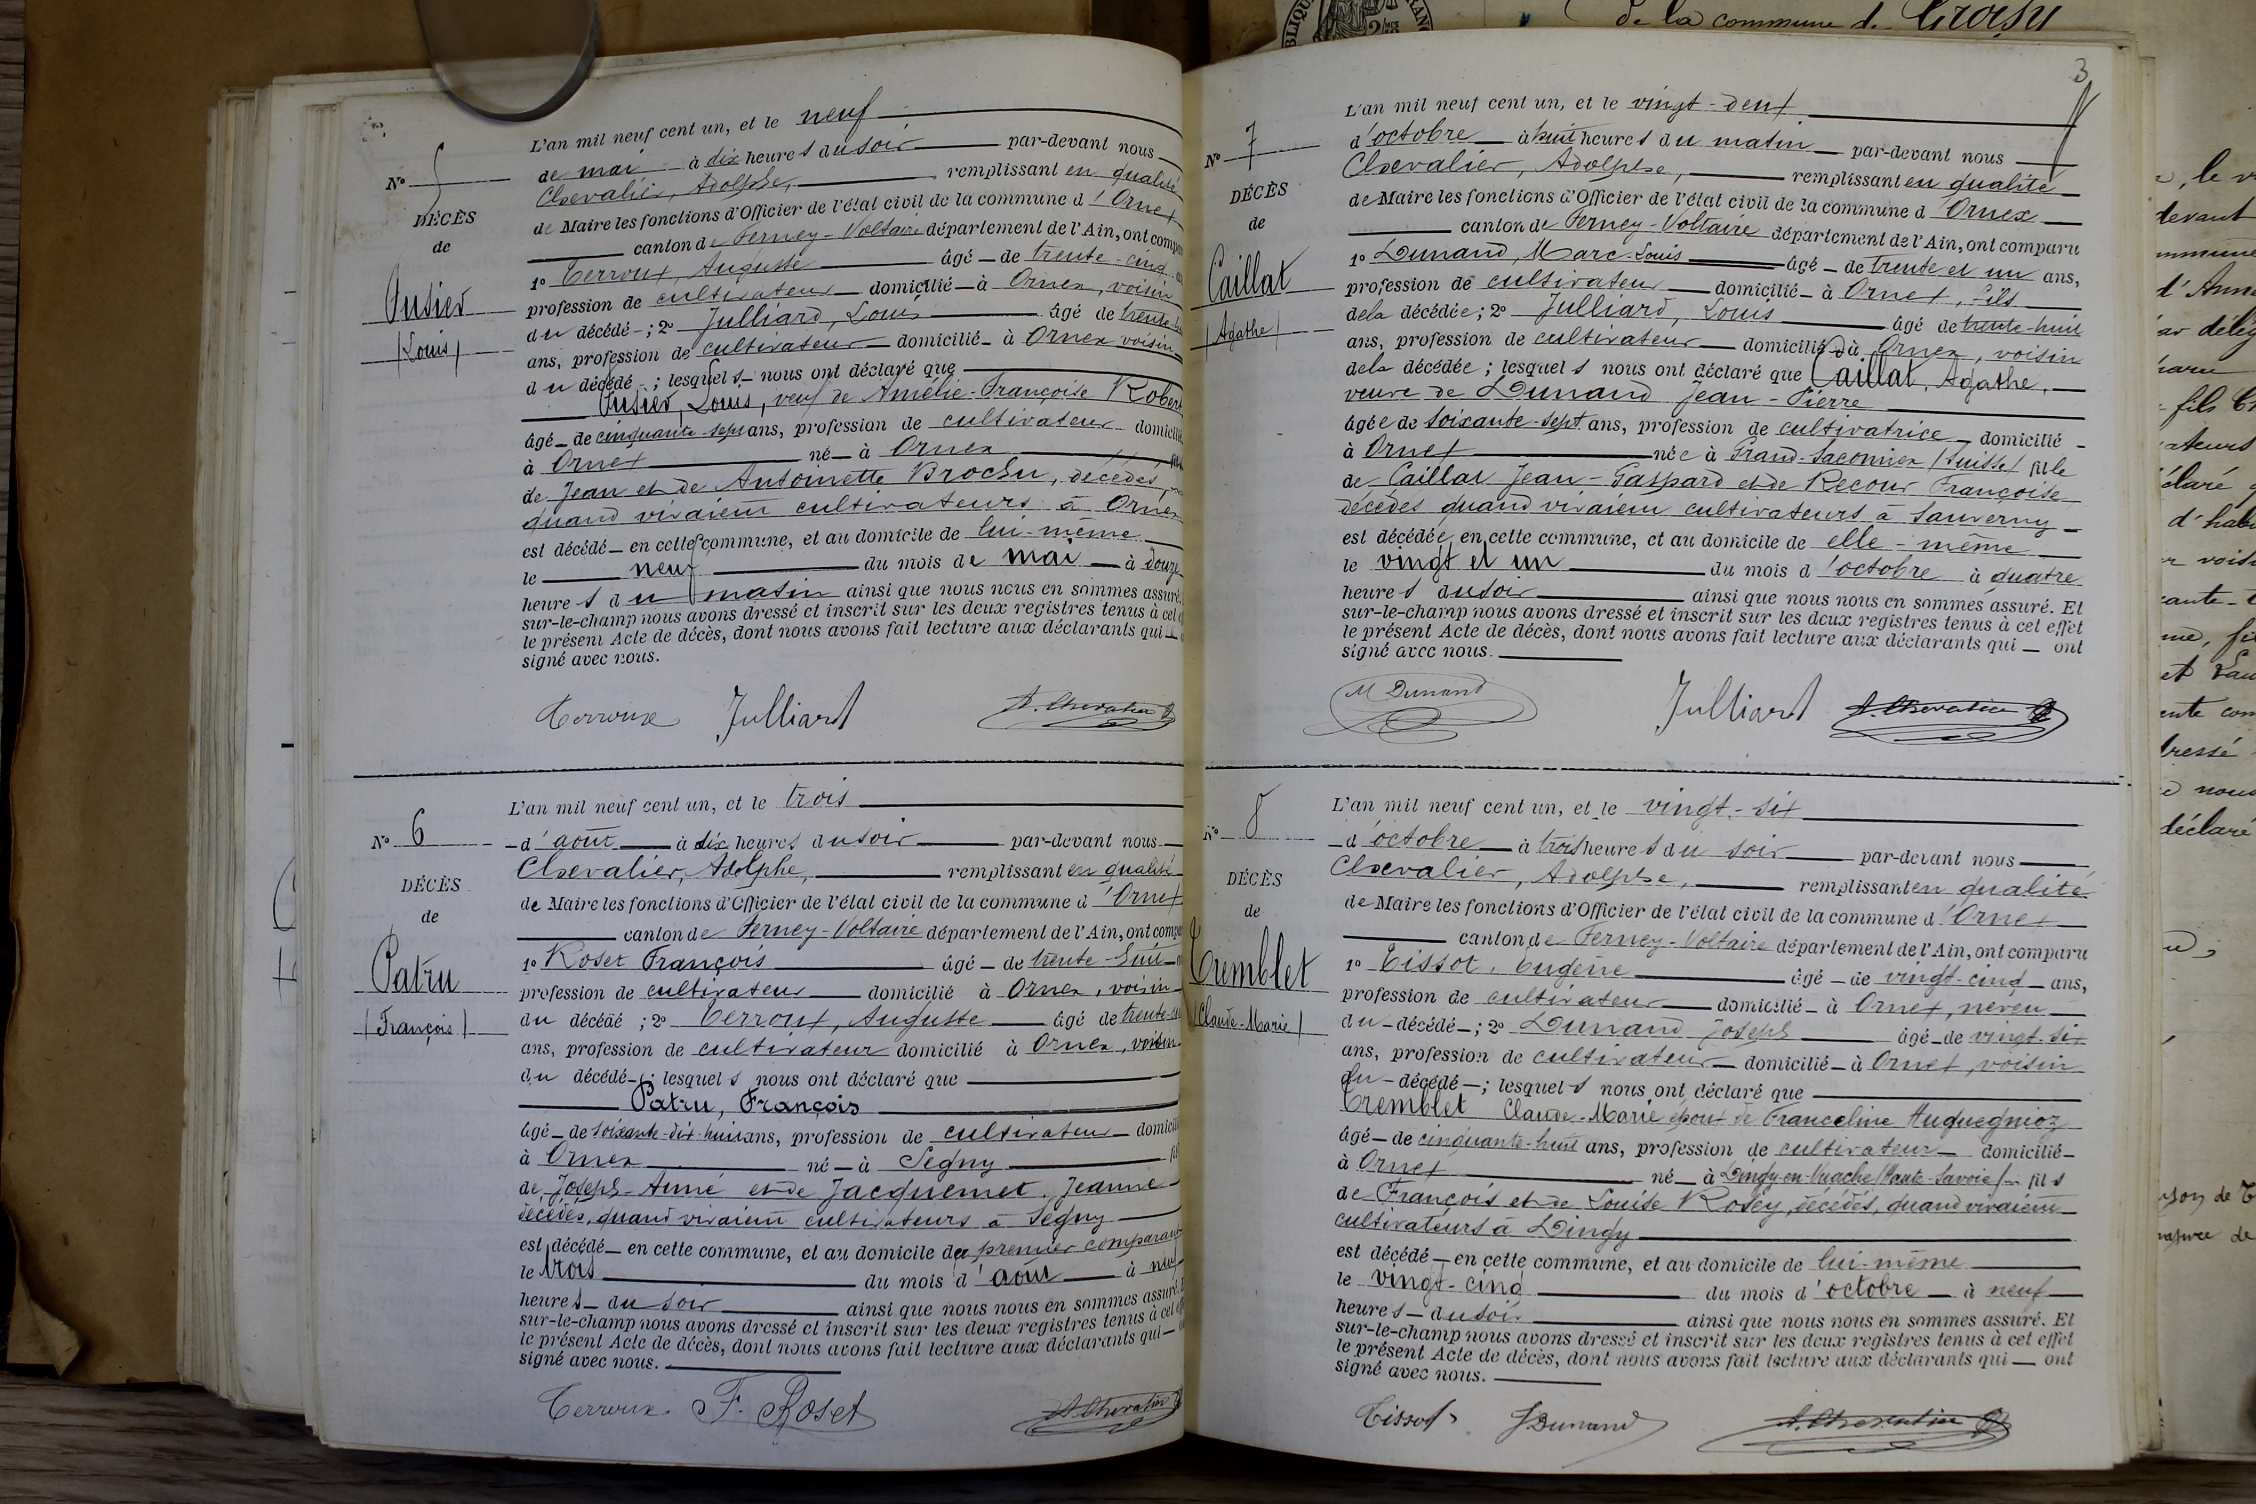 de la commune de Croisy
3
L'an mil neuf cent un, et le neuf
de mai à dix heures du soir par-devant nous
Chevalier, Adolphe, remplissant en qualité
de Maire les fonctions d'Officier de l'état civil de la commune d'Ornex
canton de Ferney-Voltaire département de l'Ain, ont
1º Terroux, Auguste âgé de trente-cinq
profession de cultivateur domicilié à Ornex, voisin
du décédé ; 2º Julliard, Louis âgé de
ans, profession de cultivateur domicilié à Ornex voisin
du décédé ; lesquels nous ont déclaré que
Louis, veuf de Amélie-Françoise Robert
âgé de cinquante-sept ans, profession de cultivateur
à Ornex né à Ornex
de Jean et de Antoinette Brochu, décédés,
quand vivaient cultivateurs à Ornex
est décédé en cette commune, et au domicile de lui-même
le neuf du mois de mai à douze
heures du matin ainsi que nous nous en sommes assuré.
sur-le-champ nous avons dressé et inscrit sur les deux registres tenus à cet
le présent Acte de décès, dont nous avons fait lecture aux déclarants qui
signé avec nous.
Nº 5
DÉCÈS
de
(Louis)
Terroux Julliard A. Chevalier
L'an mil neuf cent un, et le trois
d'août à dix heures du soir par-devant nous
Chevalier, Adolphe, remplissant en qualité
de Maire les fonctions d'Officier de l'état civil de la commune d'Ornex
canton de Ferney-Voltaire département de l'Ain, ont
1º Roset François âgé de trente-huit
profession de cultivateur domicilié à Ornex, voisin
du décédé ; 2º Terroux, Auguste âgé de
ans, profession de cultivateur domicilié à Ornex, voisin
du décédé ; lesquels nous ont déclaré que
Patru, François
âgé de soixante-dix-huit ans, profession de cultivateur
à Ornex né à Segny
de Joseph-Aimé et de Jacquemet, Jeanne
décédés, quand vivaient cultivateurs à Segny
est décédé en cette commune, et au domicile du premier
le trois du mois d'août à neuf
heures du soir ainsi que nous nous en sommes assuré.
sur-le-champ nous avons dressé et inscrit sur les deux registres tenus à cet
le présent Acte de décès, dont nous avons fait lecture aux déclarants qui
signé avec nous.
Nº 6
DÉCÈS
de
Patru
(François)
Terroux F. Roset A. Chevalier
L'an mil neuf cent un, et le vingt-deux
d'octobre à huit heures du matin par-devant nous
Chevalier, Adolphe, remplissant en qualité
de Maire les fonctions d'Officier de l'état civil de la commune d'Ornex
canton de Ferney-Voltaire département de l'Ain, ont comparu
1º Dunand, Marc-Louis âgé de trente et un ans,
profession de cultivateur domicilié à Ornex, fils
de la décédée ; 2º Julliard, Louis âgé de trente-huit
ans, profession de cultivateur domicilié à Ornex, voisin
de la décédée ; lesquels nous ont déclaré que Caillat, Agathe,
veuve de Dunand Jean-Pierre
âgée de soixante-sept ans, profession de cultivatrice domicilié
à Ornex née à Grand-Saconnex (Suisse) fille
de Caillat Jean-Gaspard et de Recour Françoise
décédés quand vivaient cultivateurs à Sauverny
est décédée en cette commune, et au domicile de elle-même
le vingt et un du mois d'octobre à quatre
heures du soir ainsi que nous nous en sommes assuré. Et
sur-le-champ nous avons dressé et inscrit sur les deux registres tenus à cet effet
le présent Acte de décès, dont nous avons fait lecture aux déclarants qui ont
signé avec nous.
Nº 7
DÉCÈS
de
Caillat
(Agathe)
M Dunand Julliard A. Chevalier
L'an mil neuf cent un, et le vingt-six
d'octobre à trois heures du soir par-devant nous
Chevalier, Adolphe, remplissant en qualité
de Maire les fonctions d'Officier de l'état civil de la commune d'Ornex
canton de Ferney-Voltaire département de l'Ain, ont comparu
1º Tissot, Eugène âgé de vingt-cinq ans,
profession de cultivateur domicilié à Ornex, neveu
du décédé ; 2º Dunand Joseph âgé de vingt-six
ans, profession de cultivateur domicilié à Ornex, voisin
du décédé ; lesquels nous ont déclaré que
Tremblet Claude-Marie époux de Franceline
âgé de cinquante-huit ans, profession de cultivateur domicilié
à Ornex né à Dingy-en-Vuache (Haute-Savoie) fils
de François et de Louise Rosey, décédés, quand vivaient
cultivateurs à Dingy
est décédé en cette commune, et au domicile de lui-même
le vingt-cinq du mois d'octobre à neuf
heures du soir ainsi que nous nous en sommes assuré. Et
sur-le-champ nous avons dressé et inscrit sur les deux registres tenus à cet effet
le présent Acte de décès, dont nous avons fait lecture aux déclarants qui ont
signé avec nous.
Nº 8
DÉCÈS
de
Tremblet
(Claude-Marie)
Tissot J. Dunand A. Chevalier